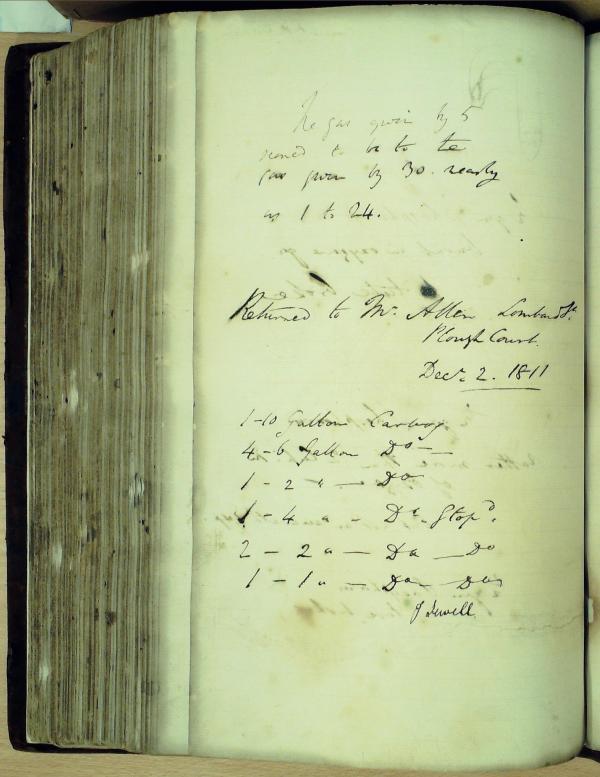 The gas given by 5
seemed to be to the
gas given by 30. nearly
as 1 to 24.
Returned to Mr. Allen Lombard St.
Plough Court.
Decr. 2. 1811
1-10 Gallon Carboy
4-6 Gallon Do —
1 - 2 " — Do
1 - 4 " - Do Stopd.
2 - 2 " — Do — Do
1 - 1 " — Do — Do